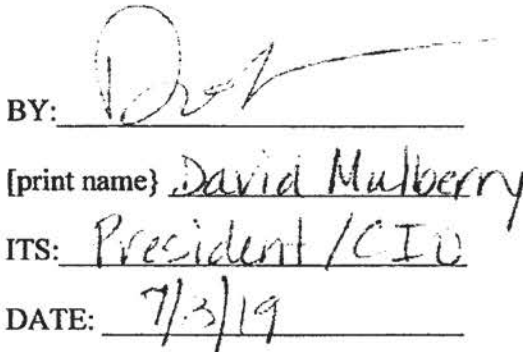 BY:
[print name} David Mulberry
ITS: President / CIO
DATE: 7/3/19